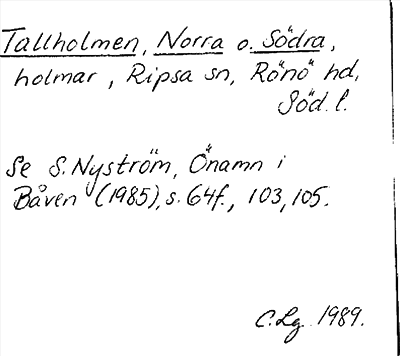 Tallholmen, Norra o. Södra,
holmar, Ripsa sn, Rönö hd,
Söd. l.
Se S. Nyström, Önamn i
Båven (1985), s. 64f., 103, 105.
C. Lg. 1989.